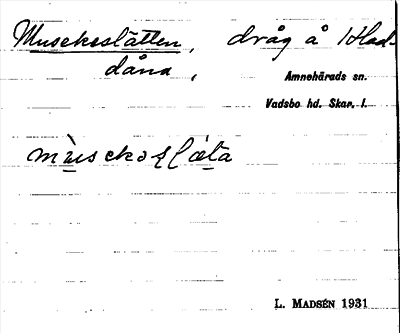 Museksslätten, dråg å Hlad-
dåna,
Amnehärads sn.
Vadsbo hd. Skar. l.
L. MADSÉN 1931